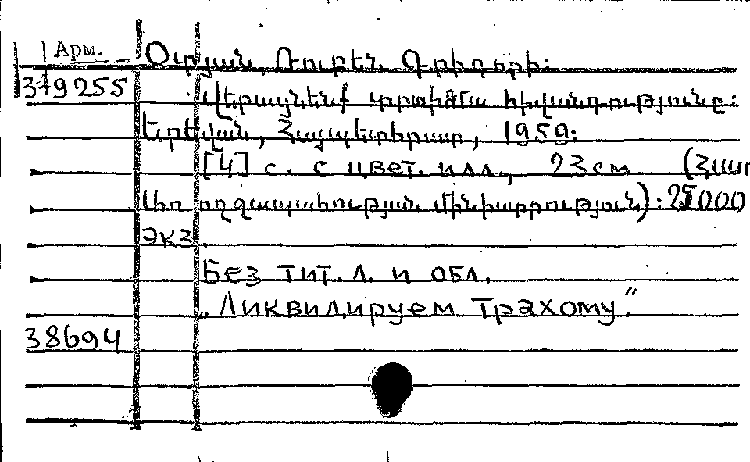 Арм. Օհյան, Ռուբեն Գրիգորի:
379255
Վերացնենք տրախոմա հիվանդությունը:
Երևան, Հայպետհրատ, 1959:
[4] с. с цвет. илл., 23 см (Հայ
առողջապահության մինիստրություն): 25000
экз
Без тит. л. и обл.
„Ликвидируем трахому".
38694